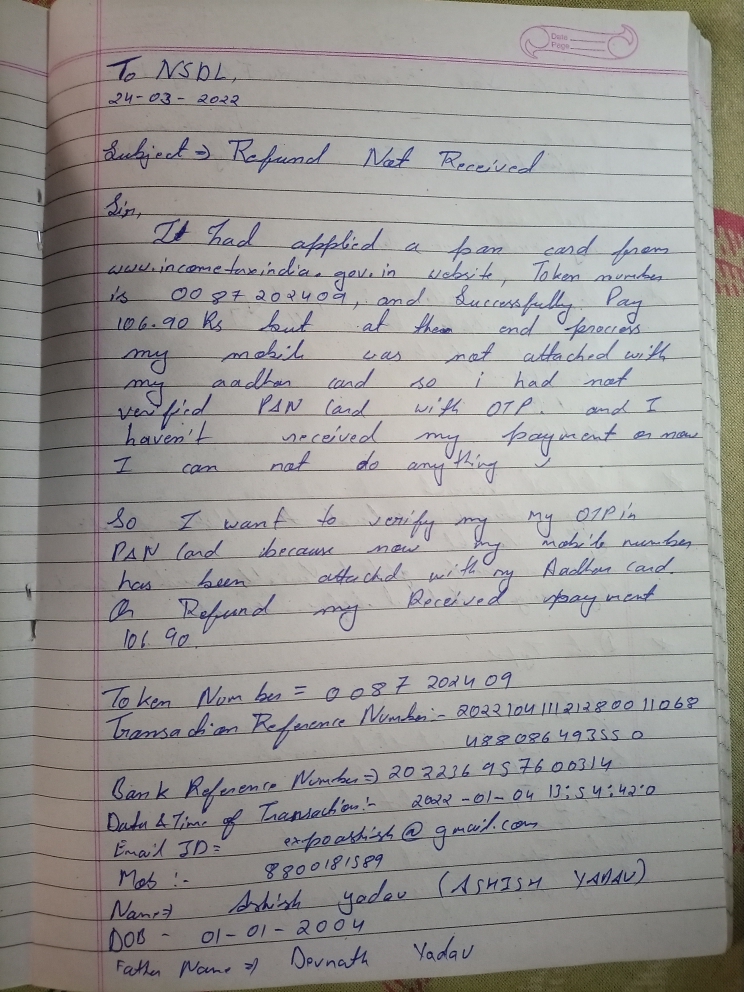 Date
Page
To NSDL,
24-03-2022
Subject ⇒ Refund Not Received
Sir,
It had applied a pan card from
www.incometaxindia.gov.in website, Token number
is 0087202409, and Successfully Pay
106.90 Rs but at the end process
my mobile was not attached with
my aadhar card so i had not
verified PAN Card with OTP. and I
haven't received my payment or now
I can not do any thing
So I want to verify my my OTP in
PAN Card because now my mobile number
has been attachd with my Aadhar Card.
Or Refund my Received payment
106.90
Token Number = 0087 202409
Transaction Reference Number:-
488086493550
Bank Reference Number ⇒ 202236957600314
Data & Time of Transaction:- 2022-01-04 13:54:42:0
Email ID = expoashish@gmail.com
Mob :- 8800181589
Name ⇒ Ashish yadav (ASHISH YADAV)
DOB - 01-01-2004
Father Name ⇒ Devnath Yadav